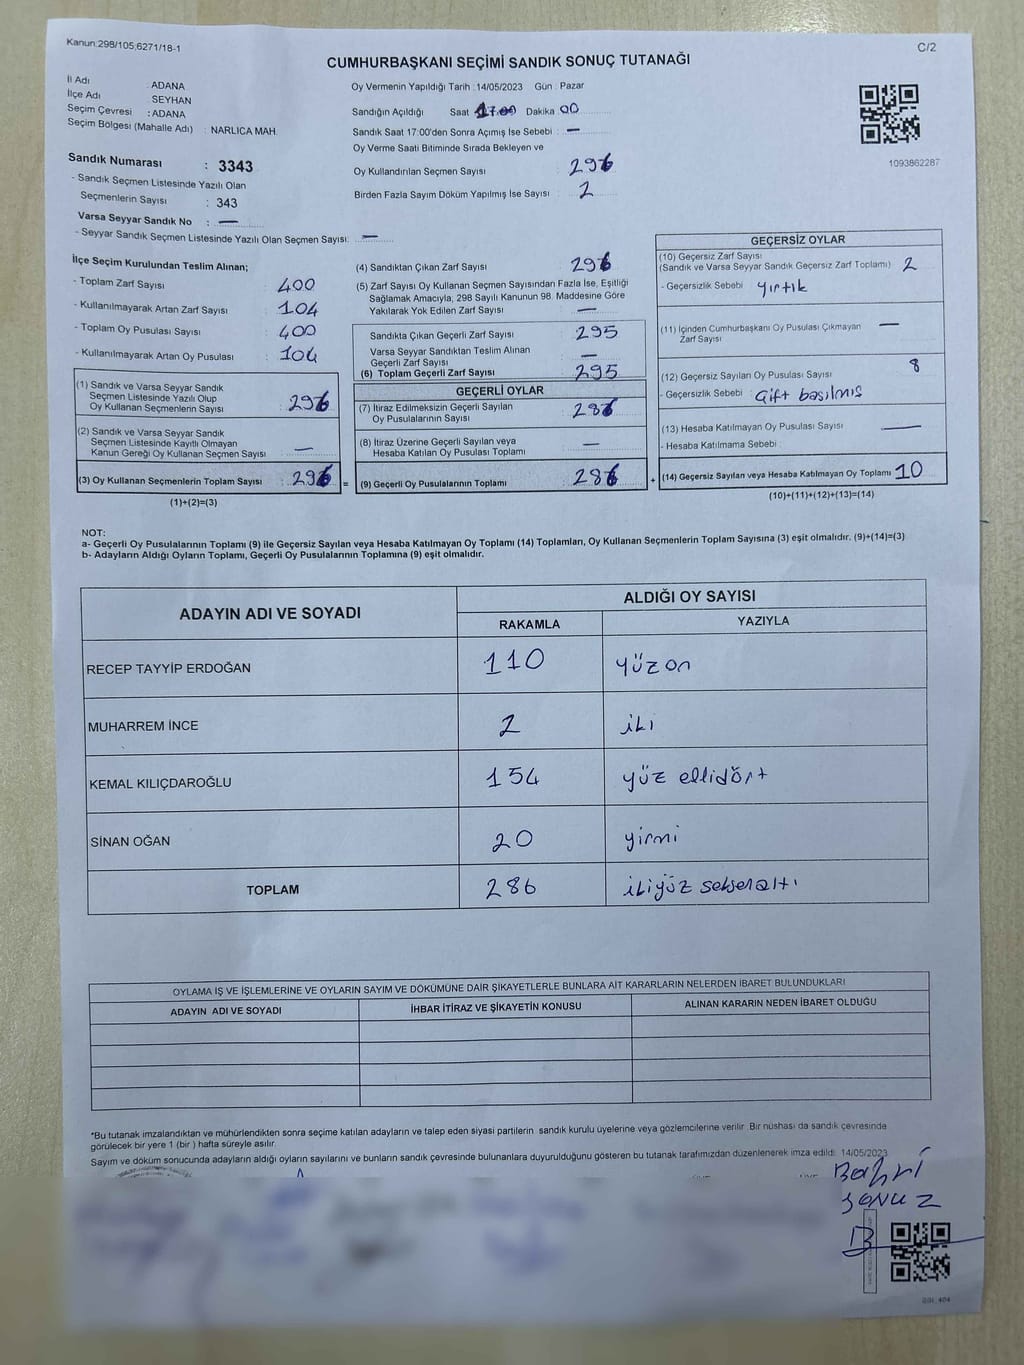 Kanun:298/105;6271/18-1
C/2
CUMHURBAŞKANI SEÇİMİ SANDIK SONUÇ TUTANAĞI
İl Adı : ADANA
İlçe Adı : SEYHAN
Seçim Çevresi : ADANA
Seçim Bölgesi (Mahalle Adı) : NARLICA MAH.
Oy Vermenin Yapıldığı Tarih : 14/05/2023 Gün : Pazar
Sandığın Açıldığı Saat 17.00 Dakika 00
Sandık Saat 17:00'den Sonra Açımış İse Sebebi : —
Oy Verme Saati Bitiminde Sırada Bekleyen ve
Oy Kullandırılan Seçmen Sayısı : 296
Birden Fazla Sayım Döküm Yapılmış İse Sayısı : 2
1093862287
Sandık Numarası : 3343
- Sandık Seçmen Listesinde Yazılı Olan
Seçmenlerin Sayısı : 343
Varsa Seyyar Sandık No : —
- Seyyar Sandık Seçmen Listesinde Yazılı Olan Seçmen Sayısı: —
İlçe Seçim Kurulundan Teslim Alınan;
- Toplam Zarf Sayısı : 400
- Kullanılmayarak Artan Zarf Sayısı : 104
- Toplam Oy Pusulası Sayısı : 400
- Kullanılmayarak Artan Oy Pusulası : 104
(1) Sandık ve Varsa Seyyar Sandık
Seçmen Listesinde Yazılı Olup
Oy Kullanan Seçmenlerin Sayısı : 296
(2) Sandık ve Varsa Seyyar Sandık
Seçmen Listesinde Kayıtlı Olmayan
Kanun Gereği Oy Kullanan Seçmen Sayısı : —
(3) Oy Kullanan Seçmenlerin Toplam Sayısı : 296 =
(1)+(2)=(3)
(4) Sandıktan Çıkan Zarf Sayısı : 296
(5) Zarf Sayısı Oy Kullanan Seçmen Sayısından Fazla İse, Eşitliği
Sağlamak Amacıyla; 298 Sayılı Kanunun 98. Maddesine Göre
Yakılarak Yok Edilen Zarf Sayısı : —
Sandıkta Çıkan Geçerli Zarf Sayısı : 295
Varsa Seyyar Sandıktan Teslim Alınan
Geçerli Zarf Sayısı : —
(6) Toplam Geçerli Zarf Sayısı : 295
GEÇERLİ OYLAR
(7) İtiraz Edilmeksizin Geçerli Sayılan
Oy Pusulasının Sayısı : 286
(8) İtiraz Üzerine Geçerli Sayılan veya
Hesaba Katılan Oy Pusulası Toplamı : —
(9) Geçerli Oy Pusulalarının Toplamı : 286 +
GEÇERSİZ OYLAR
(10) Geçersiz Zarf Sayısı
(Sandık ve Varsa Seyyar Sandık Geçersiz Zarf Toplamı) : 2
- Geçersizlik Sebebi : yırtık
(11) İçinden Cumhurbaşkanı Oy Pusulası Çıkmayan : —
Zarf Sayısı
(12) Geçersiz Sayılan Oy Pusulası Sayısı : 8
- Geçersizlik Sebebi : Çift basılmış
(13) Hesaba Katılmayan Oy Pusulası Sayısı : —
- Hesaba Katılmama Sebebi :
(14) Geçersiz Sayılan veya Hesaba Katılmayan Oy Toplamı : 10
(10)+(11)+(12)+(13)=(14)
NOT:
a- Geçerli Oy Pusulalarının Toplamı (9) ile Geçersiz Sayılan veya Hesaba Katılmayan Oy Toplamı (14) Toplamları, Oy Kullanan Seçmenlerin Toplam Sayısına (3) eşit olmalıdır. (9)+(14)=(3)
b- Adayların Aldığı Oyların Toplamı, Geçerli Oy Pusulalarının Toplamına (9) eşit olmalıdır.
ADAYIN ADI VE SOYADI ALDIĞI OY SAYISI
RAKAMLA YAZIYLA
RECEP TAYYİP ERDOĞAN 110 yüz on
MUHARREM İNCE 2 iki
KEMAL KILIÇDAROĞLU 154 yüz ellidört
SİNAN OĞAN 20 yirmi
TOPLAM 286 ikiyüz seksenaltı
OYLAMA İŞ VE İŞLEMLERİNE VE OYLARIN SAYIM VE DÖKÜMÜNE DAİR ŞİKAYETLERLE BUNLARA AİT KARARLARIN NELERDEN İBARET BULUNDUKLARI
ADAYIN ADI VE SOYADI İHBAR İTİRAZ VE ŞİKAYETİN KONUSU ALINAN KARARIN NEDEN İBARET OLDUĞU
*Bu tutanak imzalandıktan ve mühürlendikten sonra seçime katılan adayların ve talep eden siyasi partilerin sandık kurulu üyelerine veya gözlemcilerine verilir. Bir nüshası da sandık çevresinde
görülecek bir yere 1 (bir) hafta süreyle asılır.
Sayım ve döküm sonucunda adayların aldığı oyların sayılarını ve bunların sandık çevresinde bulunanlara duyurulduğunu gösteren bu tutanak tarafımızdan düzenlenerek imza edildi. 14/05/2023
Bahri
SONUZ